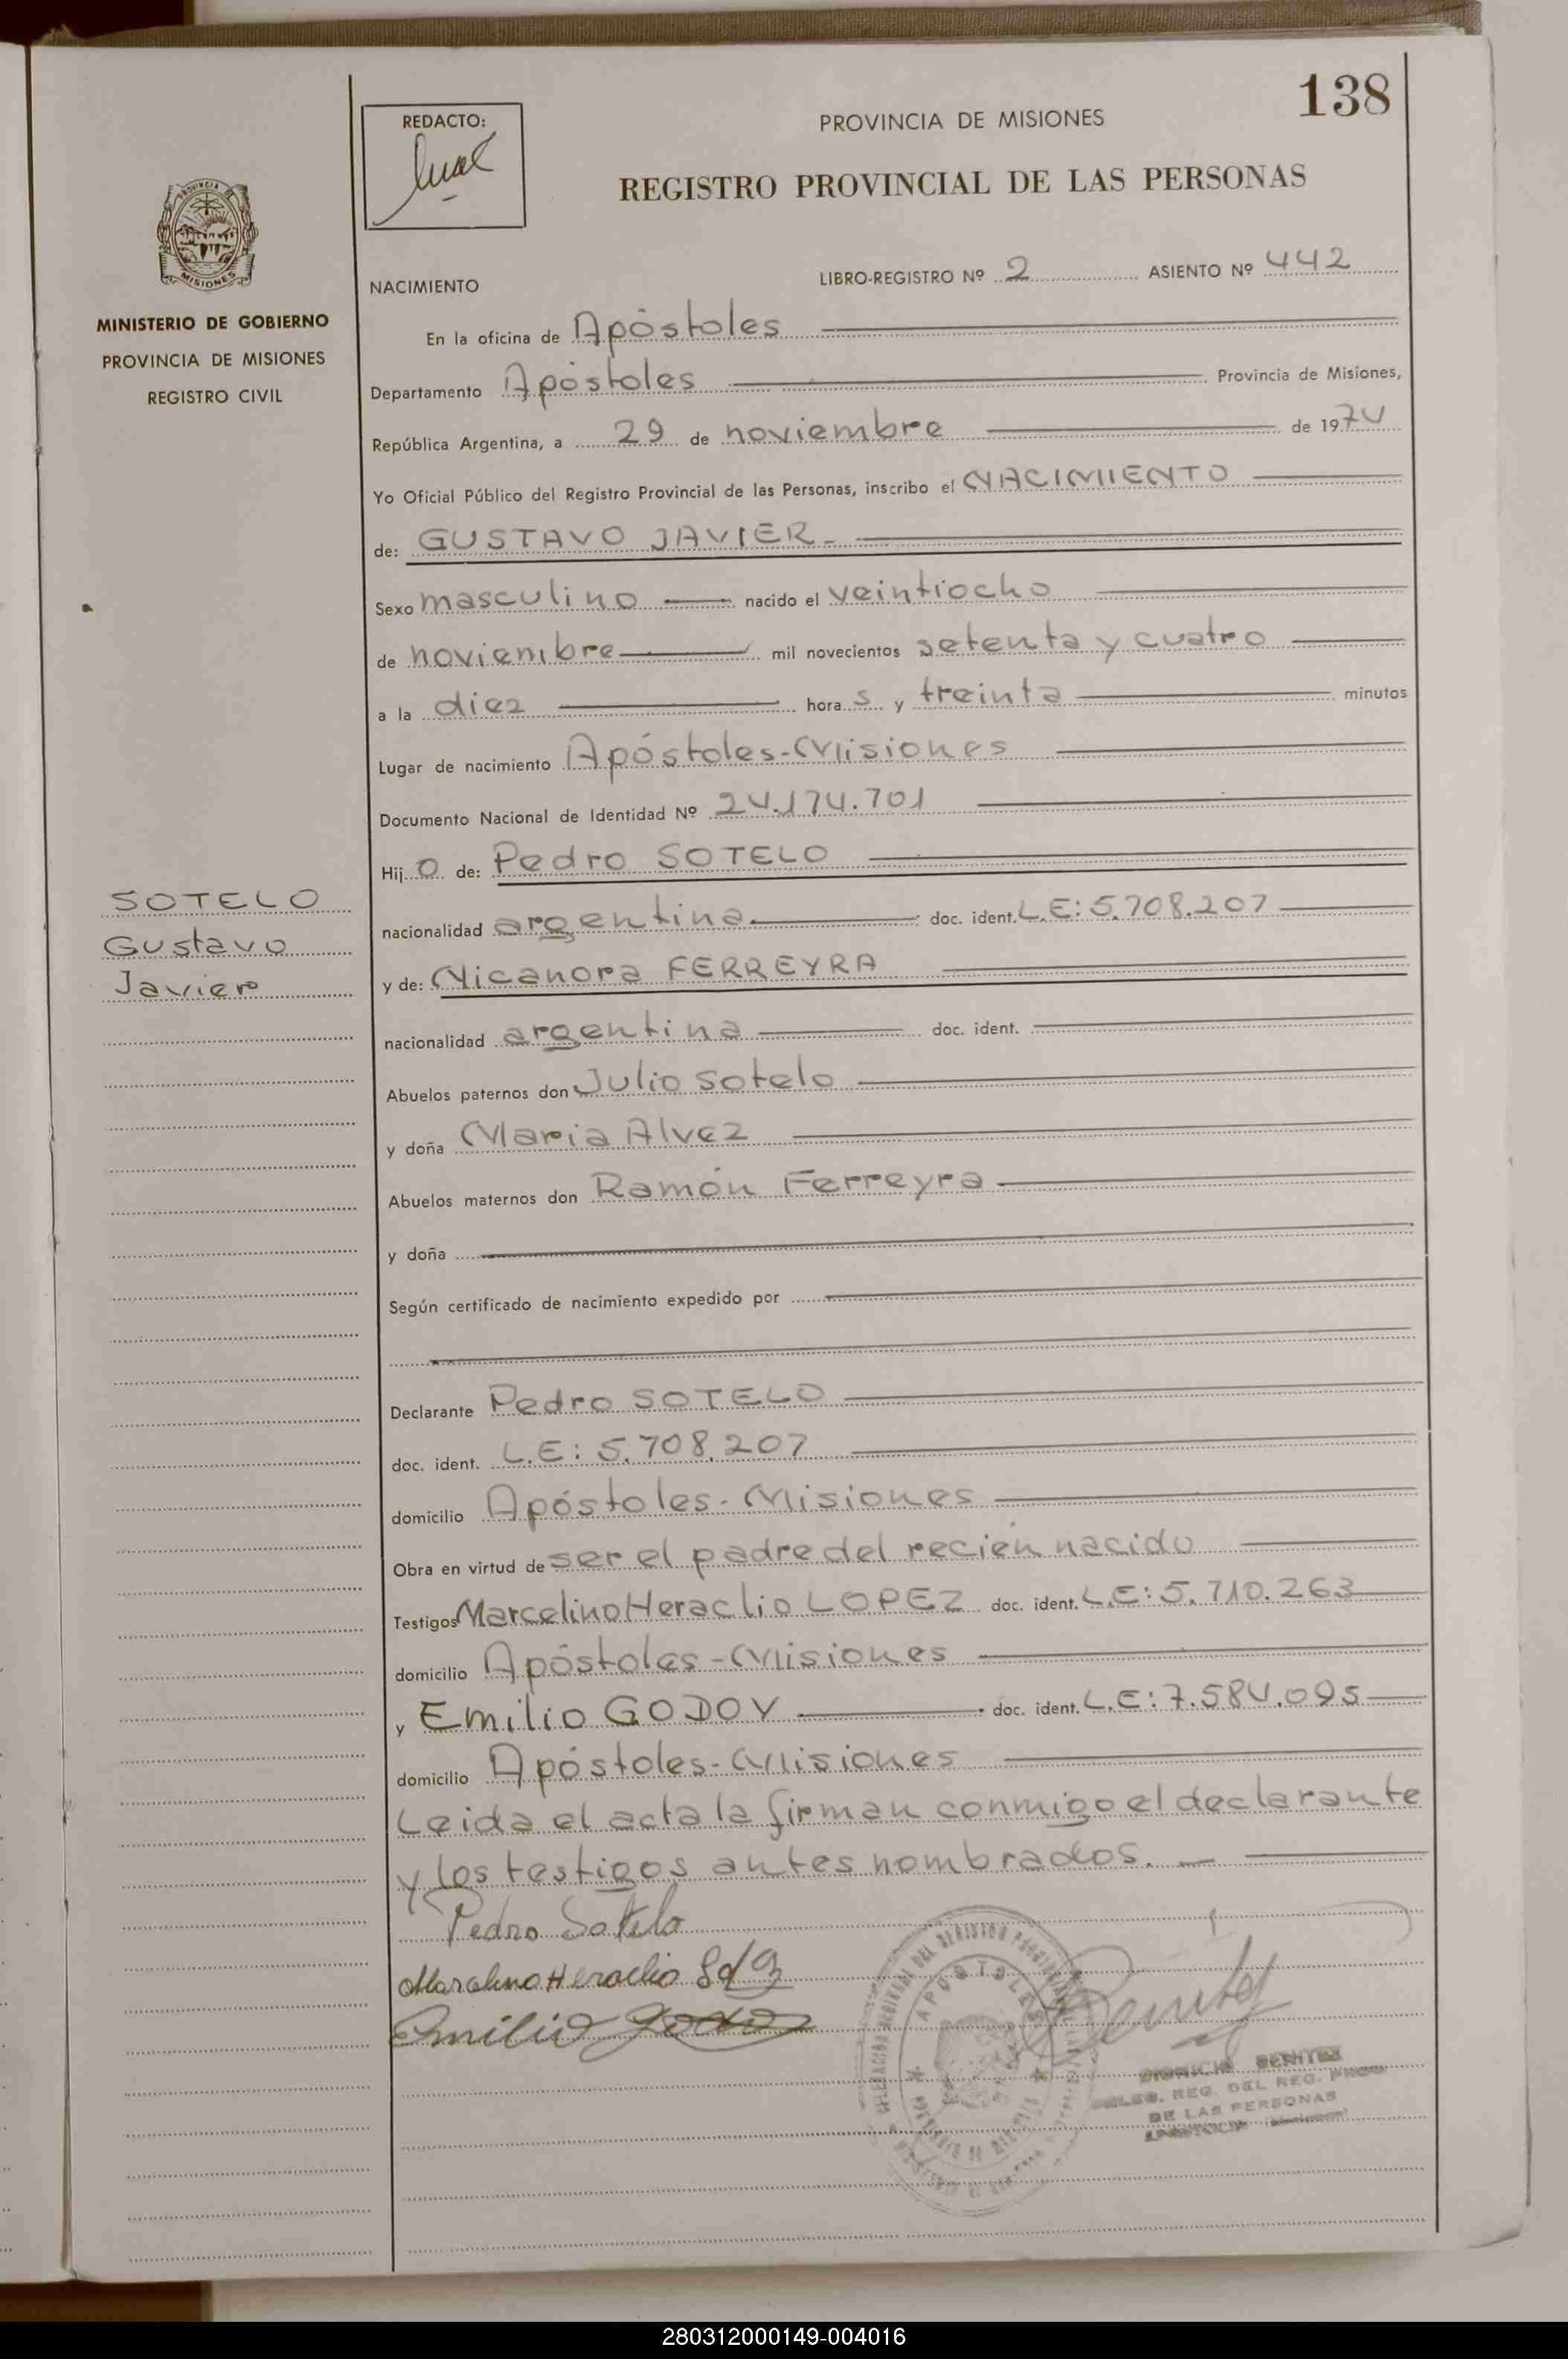 138
REDACTO:
PROVINCIA DE MISIONES
REGISTRO PROVINCIAL DE LAS PERSONAS
MISIONES
MINISTERIO DE GOBIERNO
PROVINCIA DE MISIONES
REGISTRO CIVIL
NACIMIENTO
LIBRO-REGISTRO Nº 2 ASIENTO Nº 442
En la oficina de Apóstoles
Departamento Apóstoles Provincia de Misiones,
República Argentina, a 29 de noviembre de 1974
Yo Oficial Público del Registro Provincial de las Personas, inscribo el NACIMIENTO
de: GUSTAVO JAVIER.-
Sexo masculino nacido el veintiocho
de noviembre mil novecientos setenta y cuatro
a la diez hora s y treinta minutos
Lugar de nacimiento Apóstoles-Misiones
Documento Nacional de Identidad Nº 24.174.701
Hij o de: Pedro SOTELO
SOTELO
Gustavo
Javier
nacionalidad argentina doc. ident. L.E: 5.708.207
y de: Nicanora FERREYRA
nacionalidad argentina doc. ident.
Abuelos paternos don Julio Sotelo
y doña Maria Alvez
Abuelos maternos don Ramón Ferreyra
y doña
Según certificado de nacimiento expedido por
Declarante Pedro SOTELO
doc. ident. L.E: 5.708.207
domicilio Apóstoles-Misiones
Obra en virtud de ser el padre del recién nacido
Testigos Marcelino Heraclio LOPEZ doc. ident. L.E: 5.710.263
domicilio Apóstoles-Misiones
y Emilio GODOY doc. ident. L.E: 7.584.095
domicilio Apóstoles-Misiones
Leida el acta la firman conmigo el declarante
y los testigos antes nombrados.-
Pedro Sotelo
Marcelino Heraclio
Emilio Godoy
APOSTOLES
BENITEZ
DELEG. REG. DEL REG. PROV.
DE LAS PERSONAS
280312000149-004016